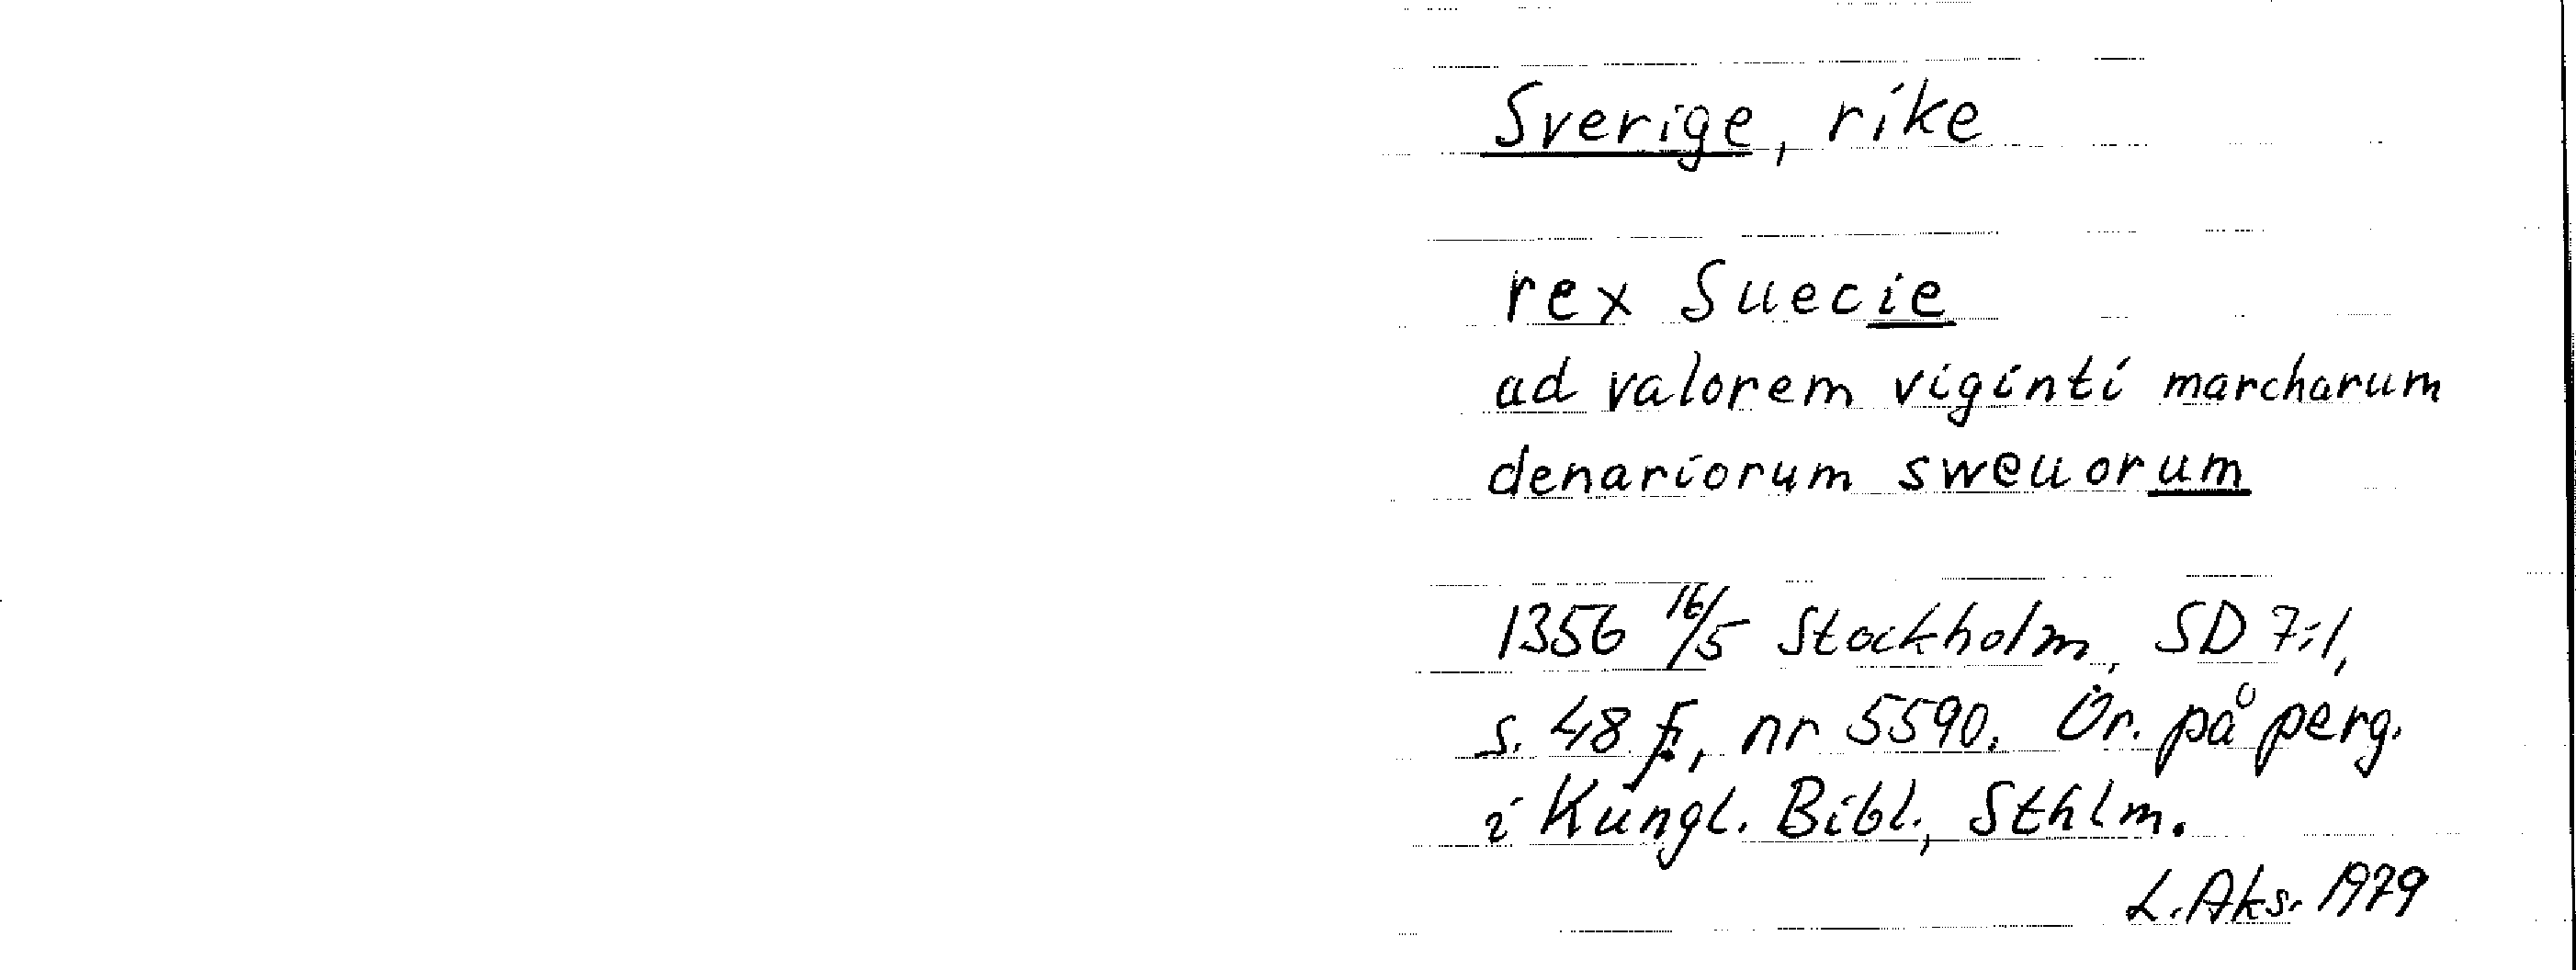 Sverige, rike
rex Suecie
ad valorem viginti marcharum
denariorum sweuorum
1356 16/5 Stockholm, SD 7:1,
s. 48 f., nr 5590. Or. på perg.
i Kungl. Bibl., Sthlm.
L. Aks. 1979